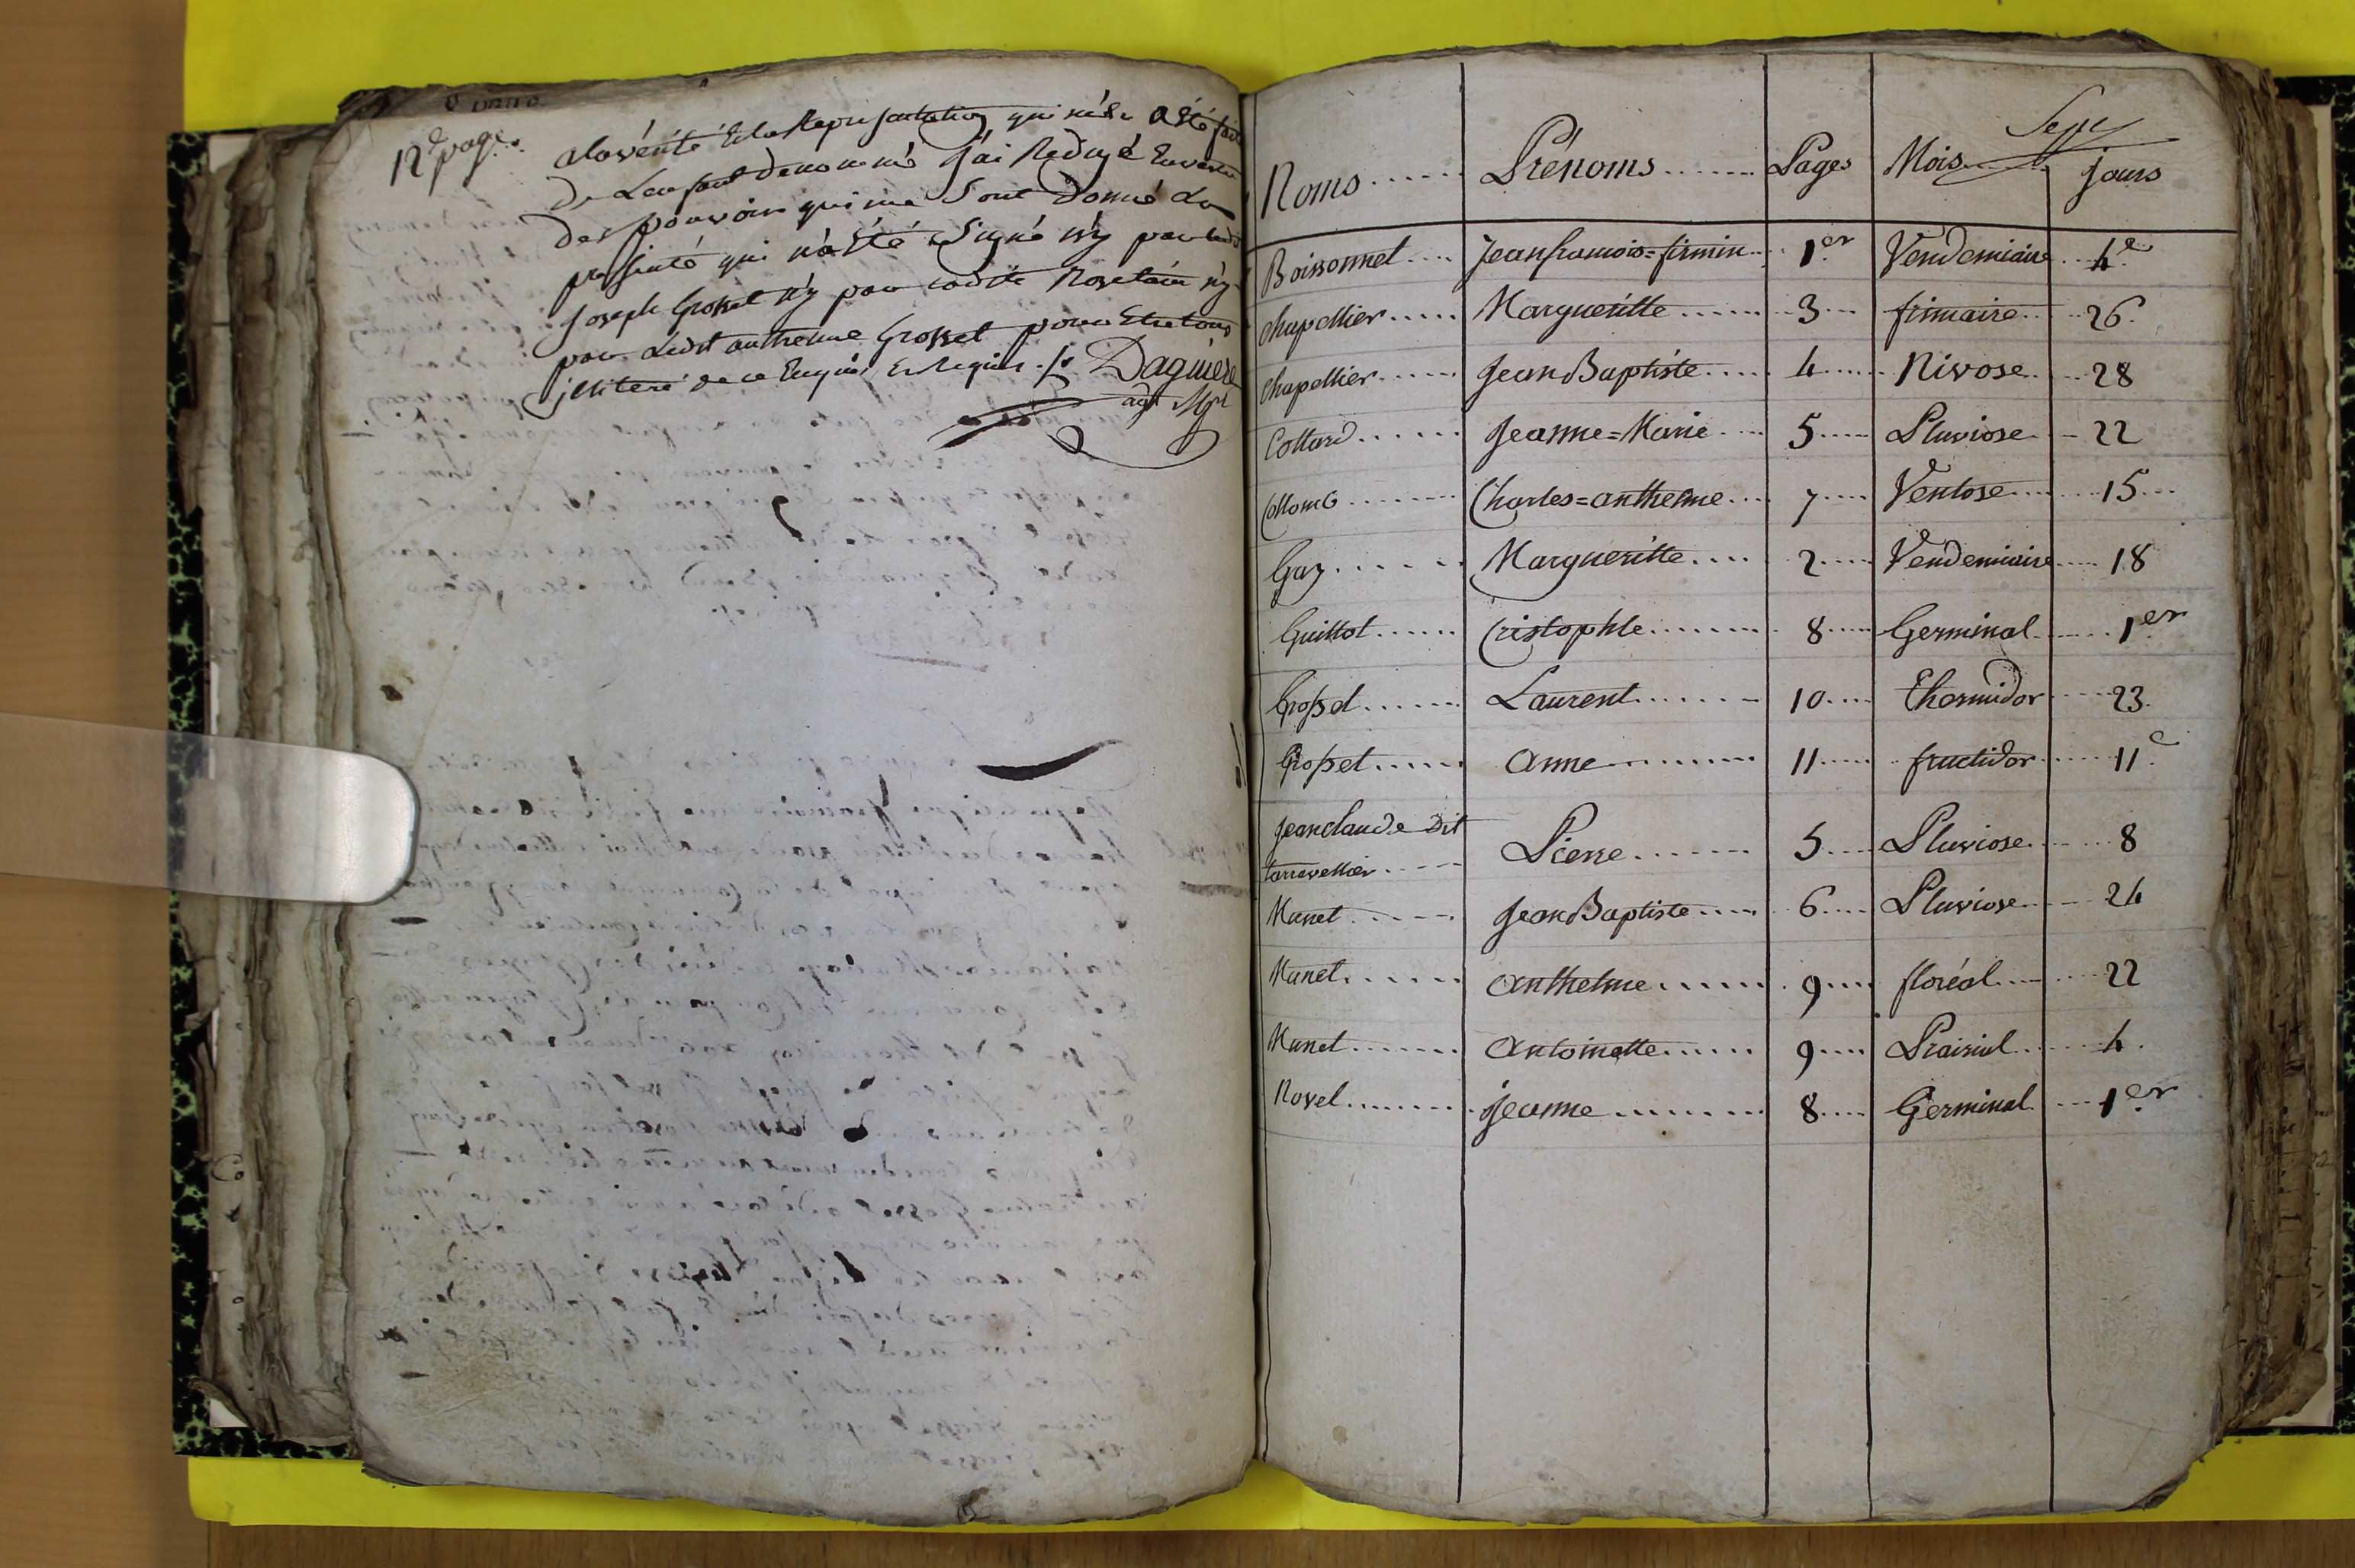 12e page.
a la vérité Et la Representation qui m'èn a Eté fait
De L'enfant denommé J'ai Redigé En vertu
Des pouvoirs qui me Sont Donné
presenté qui n'a Eté Signé n'y par
joseph Grosset n'y par ladite Rosetain n'y
par Ledit anthelme Grosset pour Etre tous
jlliteré de ce Enquis Et Requis ./. Daguiere
agt Mpl
Noms Prénoms Pages Mois jours
Boissonnet Jeanfrancois=firmin 1er Vendemiaire 4e
Chapellier Margueritte 3 frimaire 26
Chapellier Jean Baptiste 4 Nivose 28
Collard Jeanne=Marie 5 Pluviose 22
Collomb Charles=anthelme 7 Ventose 15
Gay Margueritte 2 Vendemiaire 18
Guittot Cristophle 8 Germinal 1er
Grosset Laurent 10 Thermidor 23
Grosset Anne 11 fructidor 11e
Jeanclaude Dit
tarravellier Pierre 5 Pluviose 8
Munet Jean Baptiste 6 Pluviose 24
Munet Anthelme 9 floréal 22
Munet Antoinette 9 Prairial 4
Novel jeanne 8 Germinal 1er